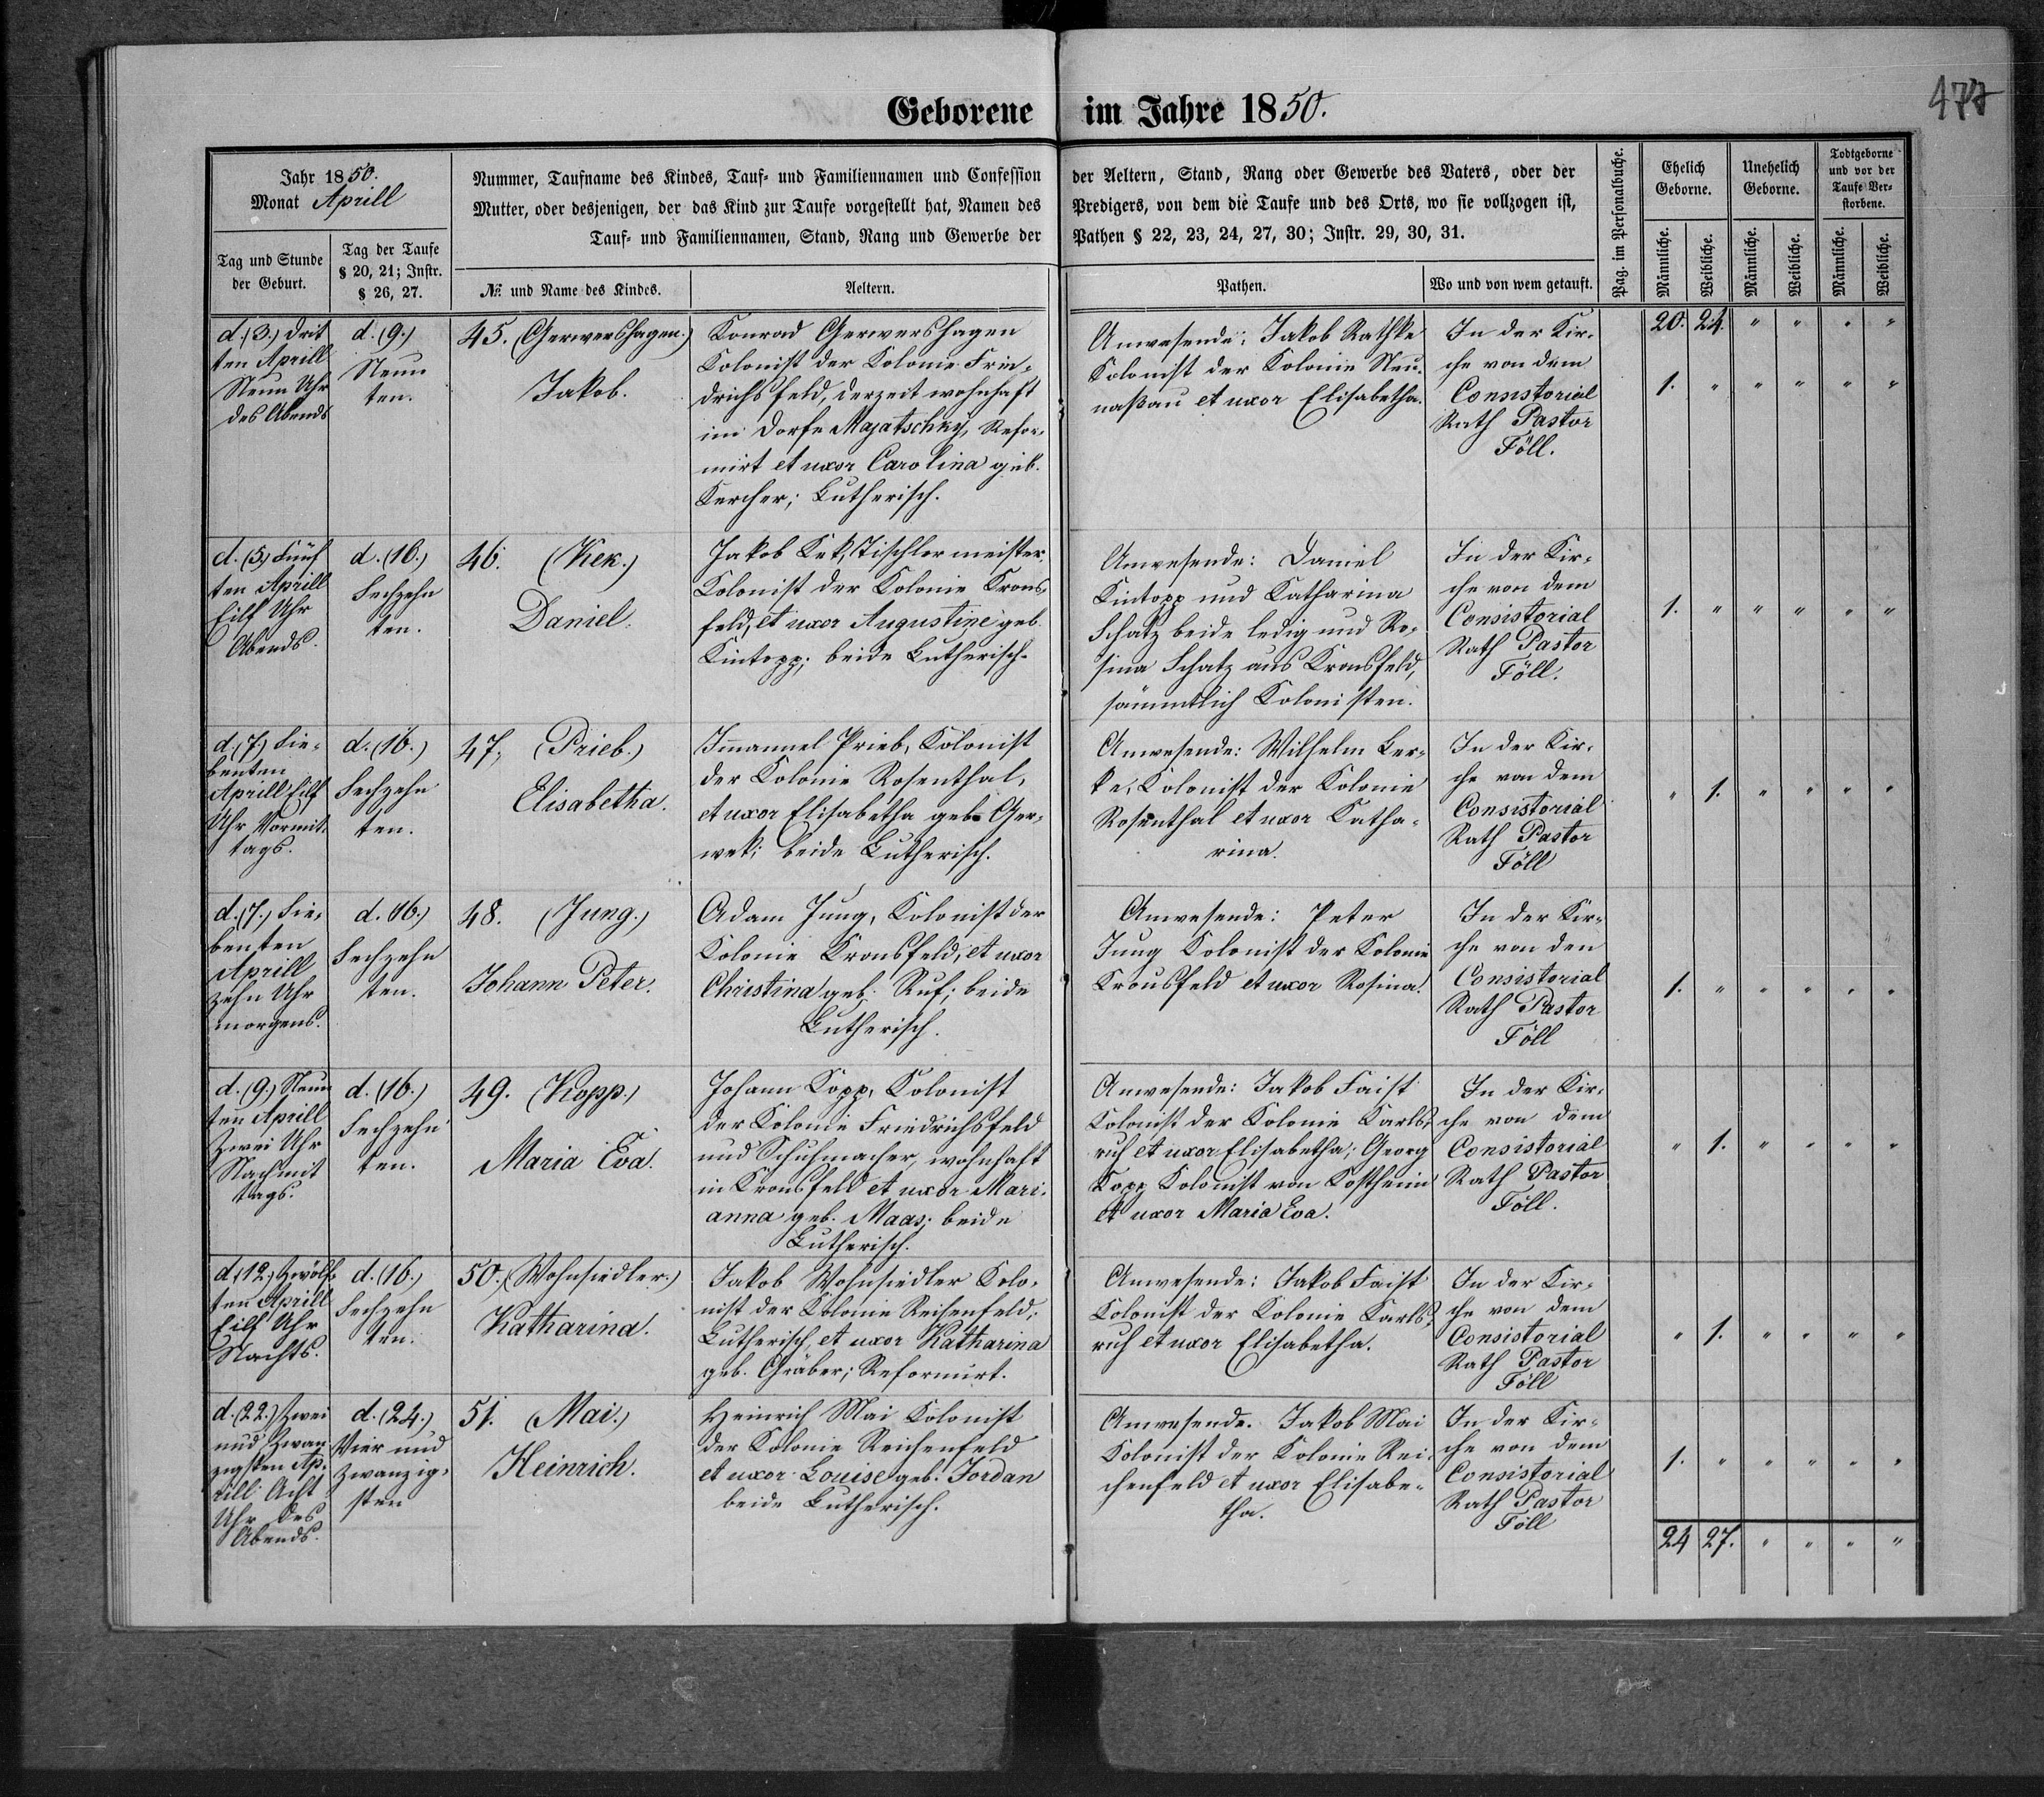 477
Geborene im Jahre 1850.
Jahr 1850.
Monat Aprill
Tag und Stunde
der Geburt.
Tag der Taufe
§ 20, 21; Instr.
§ 26, 27.
Nummer, Taufname des Kindes, Tauf- und Familiennamen und Confession
Mutter, oder desjenigen, der das Kind zur Taufe vorgestellt hat, Namen des
Tauf- und Familiennamen, Stand, Rang und Gewerbe der
№. und Name des Kindes.
Aeltern.
der Aeltern, Stand, Rang oder Gewerbe des Vaters, oder der
Predigers, von dem die Taufe und des Orts, wo sie vollzogen ist,
Pathen § 22, 23, 24, 27, 30; Instr. 29, 30, 31.
Pathen.
Wo und von wem getauft.
Pag. im Personalbuche.
Ehelich
Geborne.
Unehelich
Geborne.
Todtgeborne
und vor der
Taufe Ver-
storbene.
Männliche.
Weibliche.
Männliche.
Weibliche.
Männliche.
Weibliche.
20. 24. " " " "
d. (3.) Drit
ten Aprill
Neun Uhr
des Abends
d. (9.)
Neun
ten.
45. (Gerwershagen.)
Jakob.
Konrad Gerwershagen
Kolonist der Kolonie Frie-
drichsfeld, derzeit wohnhaft
im Dorfe Majatschky, Refor-
mirt et uxor Carolina geb.
Kercher; Lutherisch.
Anwesende: Jakob Rathke
Kolonist der Kolonie Neu-
naßau et uxor Elisabetha.
In der Kir-
che von dem
Consistorial
Rath Pastor
Föll.
1. " " " " "
d. (5.) Fünf
ten Aprill
Eilf Uhr
Abends.
d. (16.)
Sechzehn
ten.
46. (Kek.)
Daniel.
Jakob Kek, Tischlermeister,
Kolonist der Kolonie Krons-
feld, et uxor Augustine geb.
Kintopp; beide Lutherisch.
Anwesende: Daniel
Kintopp und Katharina
Schatz beide ledig und Ro-
sina Schatz aus Kronsfeld,
sämmtlich Kolonisten.
In der Kir-
che von dem
Consistorial
Rath Pastor
Föll.
1. " " " " "
d. (7.) Sie-
benten
Aprill Eilf
Uhr Vormit-
tags.
d. (16.)
Sechzehn
ten.
47. (Prieb.)
Elisabetha.
Immanuel Prieb, Kolonist
der Kolonie Rosenthal,
et uxor Elisabetha geb. Ger-
wek; beide Lutherisch.
Anwesende: Wilhelm Ler-
ke, Kolonist der Kolonie
Rosenthal et uxor Katha-
rina.
In der Kir-
che von dem
Consistorial
Rath Pastor
Föll
" 1. " " " "
d. (7.) Sie-
bensten
Aprill
zehn Uhr
morgens.
d. (16.)
Sechzehn
ten.
48. (Jung.)
Johann Peter.
Adam Jung, Kolonist der
Kolonie Kronsfeld, et uxor
Christina geb. Ruf; beide
Lutherisch.
Anwesende: Peter
Jung Kolonist der Kolonie
Kronsfeld et uxor Rosina.
In der Kir-
che von den
Consistorial
Rath Pastor
Föll
1. " " " " "
d. (9.) Neun
ten Aprill
Zwei Uhr
Nachmit
tags.
d. (16.)
Sechzehn
ten.
49. (Kopp.)
Maria Eva.
Johann Kopp, Kolonist
der Kolonie Friedrichsfeld
und Schuhmacher, wohnhaft
in Kronsfeld et uxor Mari-
anna geb. Maas; beide
Lutherisch.
Anwesende: Jakob Faist
Kolonist der Kolonie Karls-
ruh et uxor Elisabetha; Georg
Kopp Kolonist von Kostheim
et uxor Maria Eva.
In der Kir-
che von dem
Consistorial
Rath Pastor
Föll.
" 1. " " " "
d. (12.) Zwölf-
ten Aprill
Eilf Uhr
Nachts.
d. (16.)
Sechzehn
ten.
50. (Wohnsiedler.)
Katharina.
Jakob Wohnsiedler Kolo-
nist der Kolonie Reichenfeld;
Lutherisch, et uxor Katharina
geb. Gräber; Reformirt.
Anwesende: Jakob Faist
Kolonist der Kolonie Karls-
ruh et uxor Elisabetha.
In der Kir-
che von dem
Consistorial
Rath Pastor
Föll
" 1. " " " "
d. (22.) Zwei
und Zwan
zigsten Ap-
rill Acht
Uhr des
Abends.
d. (24.)
Vier und
Zwanzig-
sten
51. (Mai.)
Heinrich.
Heinrich Mai Kolonist
der Kolonie Reichenfeld
et uxor Louise geb. Jordan
beide Lutherisch.
Anwesende. Jakob Mai
Kolonist der Kolonie Rei-
chenfeld et uxor Elisabe-
tha.
In der Kir-
che von dem
Consistorial
Rath Pastor
Föll
1. " " " " "
24 27. " " " "